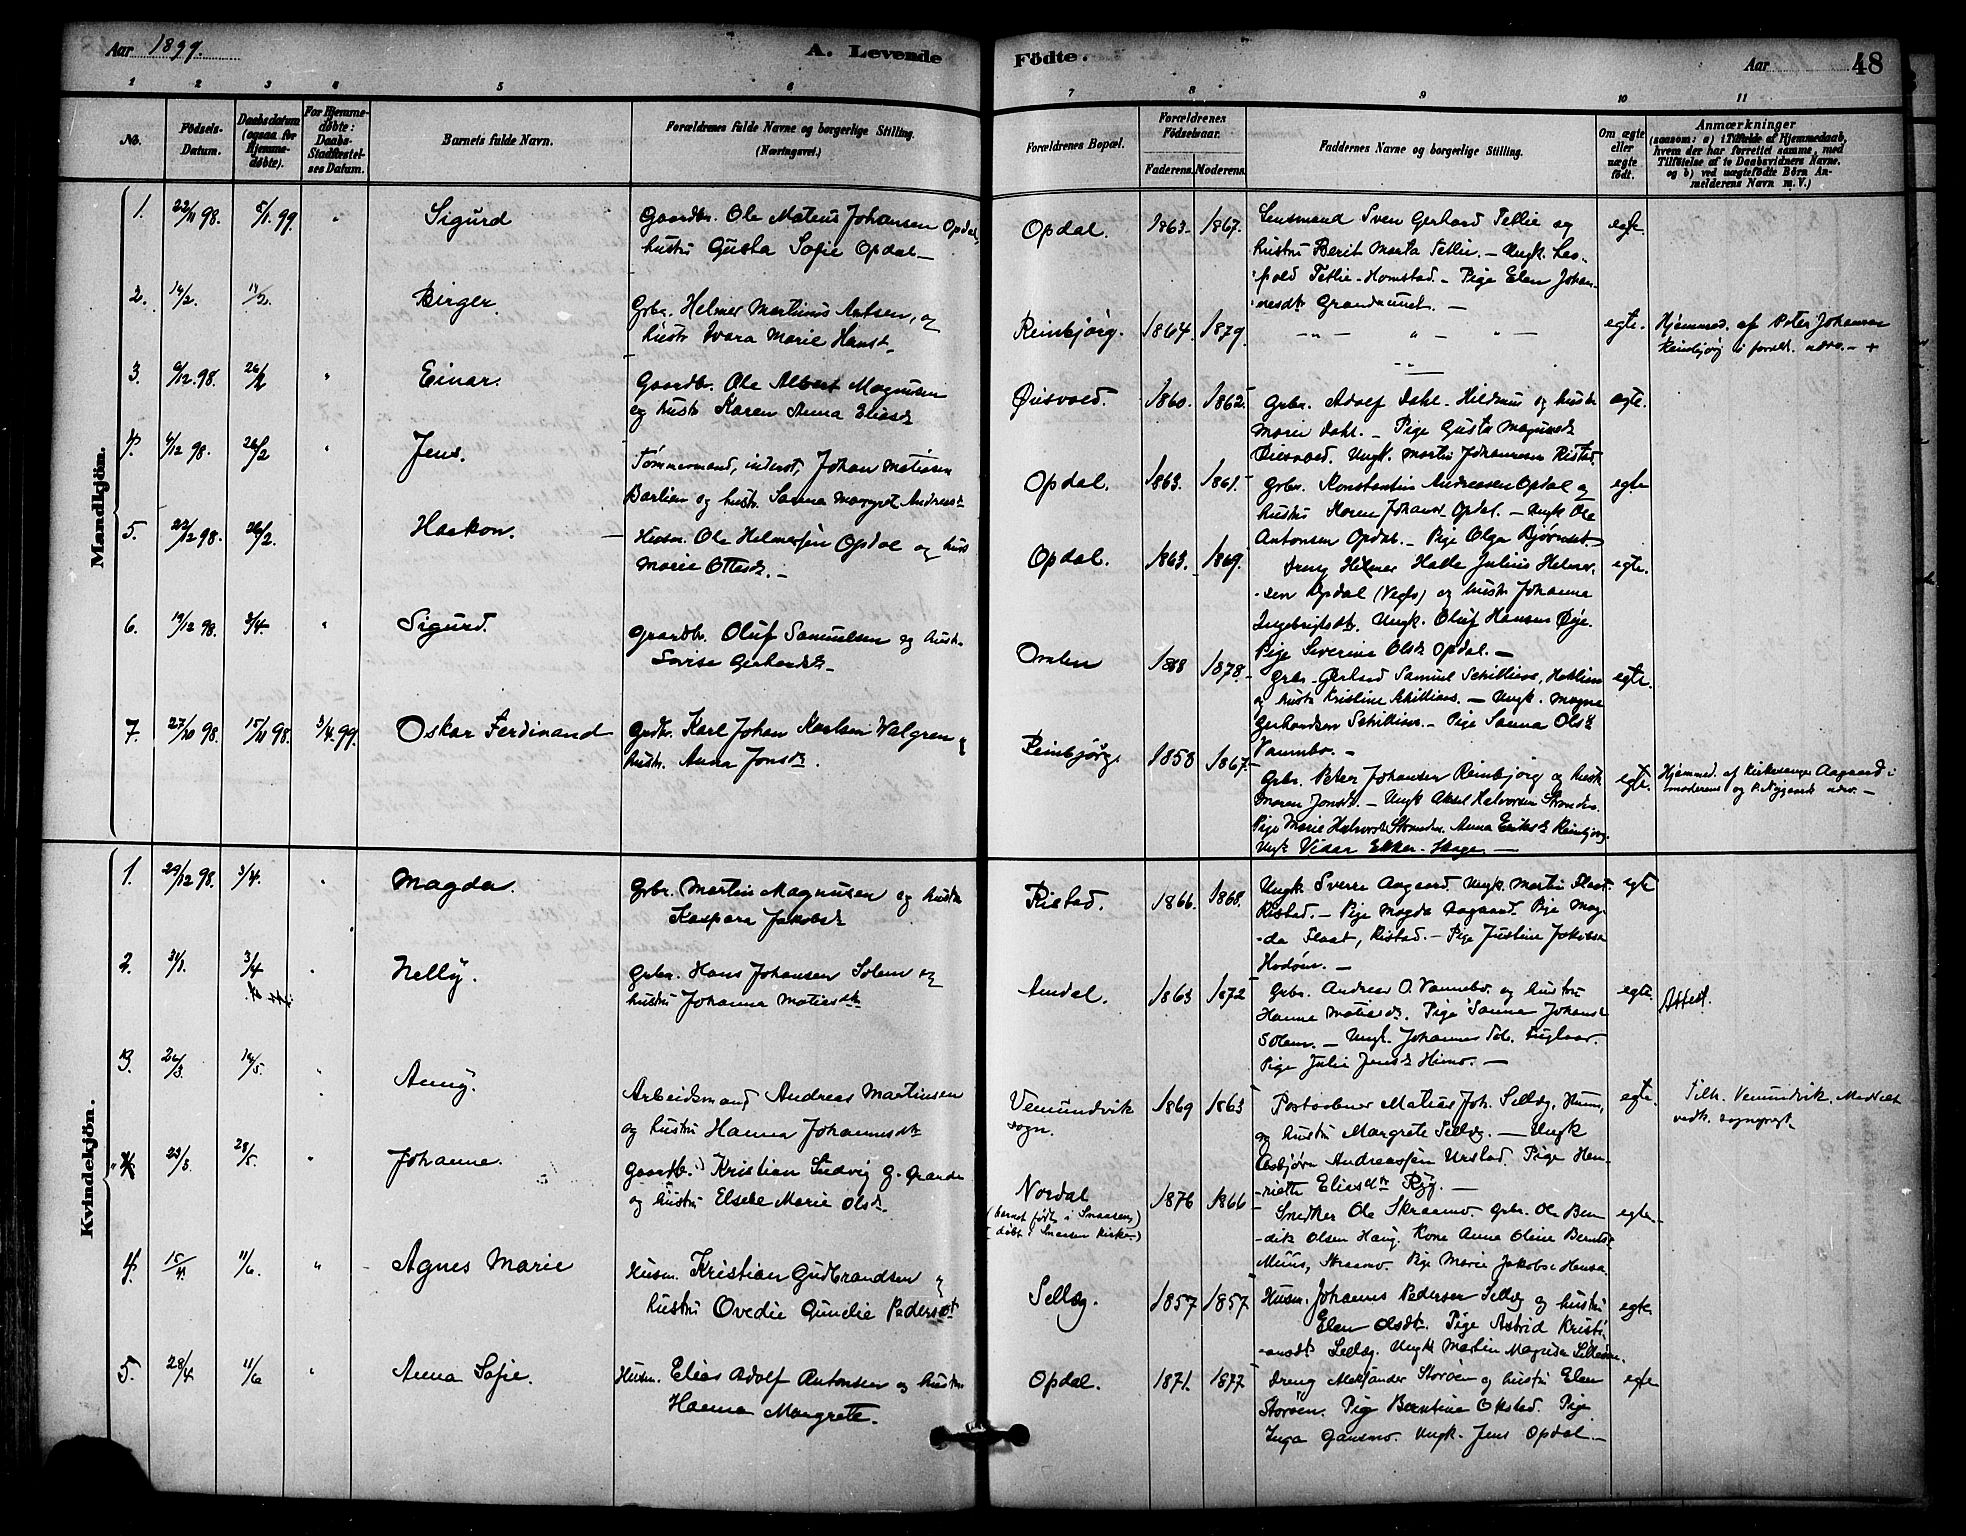 Aar 1899.
A. Levende
Födte.
Aar
48
1 2 3 4 5 6
7 8 9 10 11
No.
Födsels-
Datum.
Daabsdatum
(ogsaa for
Hjemme-
døbte).
For Hjemme-
døbte:
Daabs-
Stadfæstel-
ses Datum.
Barnets fulde Navn.
Forældrenes fulde Navne og borgerlige Stilling.
(Næringsvei.)
Forældrenes Bopæl.
Forældrenes
Födselsaar.
Faderens. Moderens.
Faddernes Navne og borgerlige Stilling.
Om ægte
eller
uægte
födt.
Anmærkninger
(saasom: a) i Tilfælde af Hjemmedaab,
hvem der har forrettet samme, med
Tilföielse af to Daabsvidners Navne.
og b) ved uægtefödte Börn An-
melderens Navn m. V.)
Mandkjön.
1. 22/11 98. 5/1 99. " Sigurd
Gaardbr. Ole Mateus Johansen Opdal,
hustru Gusta Sofie Opdal
Opdal. 1863. 1867.
Lensmand Sven Gerhard Tetlie og
hustru Berit Marta Tetlie. - Ungk. Leo-
pold Tetlie - Homstad. - Pige Elen Johan-
nesdtr
egte.
2. 14/2. Birger.
Grbr. Helmer Martinus Antsen, og
hustr. Marie Hansd.
Reinbjörg. 1864. 1879.
egte.
Hjemmed. af Peter Johansen
Reinbjörg i foræld. nærv. - +
3. 6/12 98. 26/2 " Einar.
Gaardbr. Ole Albert Magnusen
og hustr. Karen Anna Eliasd.
Øiesvold. 1860. 1862.
Grbr. Adolf Dahl - Hildrem og hustr
Marie Dahl. - Pige Gusta Magnusd.
Øiesvold. Ungk. Martin Johannesen Ristad.
egte.
4. 6/12 98. 26/2 " Jens.
Tømmermand, inderst, Johan Matiasen
Barlien og hustr. Sanna Margret Andreasd.
Opdal. 1863. 1861.
Grbr. Konstantin Andreasen Opdal og
hustru Karen Johansd. Opdal. - Ungk. Ole
Antonsen Opdal. - Pige Olga Bjørnset
egte
5. 22/12 98. 26/2. Haakon.
Husm. Ole Helmersen Opdal og hust
Marie Ottesd. -
Opdal. 1863. 1869.
Dreng Helmer Halle Julius Helmer-
sen Opdal og hustr. Johanna
Ingebrigtsdtr. Ungk. Oluf Hansen Øye.
Pige Severine Olsd. Opdal. -
egte.
6. 14/12 98. 3/4. " Sigurd.
Gaardbr. Oluf Samuelsen og hustr.
Lovise Gerhardsd. -
Omlien 1878.
Grbr. Gerhard Samuel
og hustr. Kristine - Ungk. Magne
Gerhardsen - Pige Sanna Olsd.
Vannebo. -
egte.
7. 27/10 98. 15/11 98. 3/4 99. Oskar Ferdinand
Grdbr. Karl Johan Karlsen Valgren og
hustr. Anna Jonsdr.
Reinbjörg 1858 1867.
Grbr. Peter Johansen Reinbjörg og hustr.
Maren Jonsd. - Ungk. Aksel Halvorsen Stranden.
Pige Marie Halvorsd. Stranden. Anna Eriksd. Reinbjörg.
Ungk. Vidar Ekker - Hage -
egte.
Hjemmed. af Kirkesanger Aagaard i
moderens og P. Nygaards nærv. -
Kvindekjön.
1. 29/12 98. 3/4. " Magda.
Grbr. Martin Magnusen og hustr
Kaspara Jakobsd.
Ristad. 1866. 1868.
Ungk. Sverre Aagaard. Ungk. Martin Flaat
Ristad. - Pige Magda Aagaard. Pige Mag-
da Flaat, Ristad. - Pige Justine Jakobsd
Hodøen. -
egte
2. 31/1. 3/4 Nelly.
Grbr. Hans Johansen Solem og
hustru Johanna Matiasdtr
Amdal. 1863 1872
Grbr. Andreas O. Vannebo og hustru
Hanna Matiasd. Pige Sanna Johansd.
Solem. - Ungk. Johannes Fuglaar.
Pige Julie Jensd. Himo. -
egte.
Attest.
3. 26/3 14/5. " Anny.
Arbeidsmand Andreas Martinsen
og hustru Hanna Johannesdtr
Vemundvik
sogn.
1869 1863
Postaabner Matias Joh. Sellæg, Hunn,
og hustru Margrete Sellæg. - Ungk
Asbjørn Andreassen Urstad. Pige Hen-
riette Eliasdtr Ryg. -
egte.
Tilh. Vemundvik. Meddelt
vedk. sogneprest
23/3 28/5. " Johanne.
Gaardb. Kristian Ludvig G. Grande
og hustru Elsebe Marie Olsd.
Nordal
(barnet født i Snaasen)
(døbt i Snaasen kirke)
1876 1866
Snedker Ole Skraamo. Grbr. Ole Ben-
dik Olsen Haug. Kone Anna Oline Berntsd.
Muus, Pige Marie Jakobsd.
egte
4. 15/4. 11/6. " Agnes Marie
Husm. Kristian Gudbrandsen og
hustru Ovedie Gunelie Pedersdtr
Sellæg. 1857 1857
Husm. Johannes Pedersen Sellæg og hustru
Elen Olsdtr. Pige Astrid Kristi-
ansdtr Sellæg. Ungk Martin
egte
5. 28/4 11/6 " Anna Sofie.
Husm. Elias Adolf Antonsen og hustru
Hanna Margrete.
Opdal. 1871. 1877
Dreng Storöen og hustru Elen
Storöen. Pige Berntine Okstad. Pige
Inga Gansmo. Ungk. Jens Opdal. -
egte